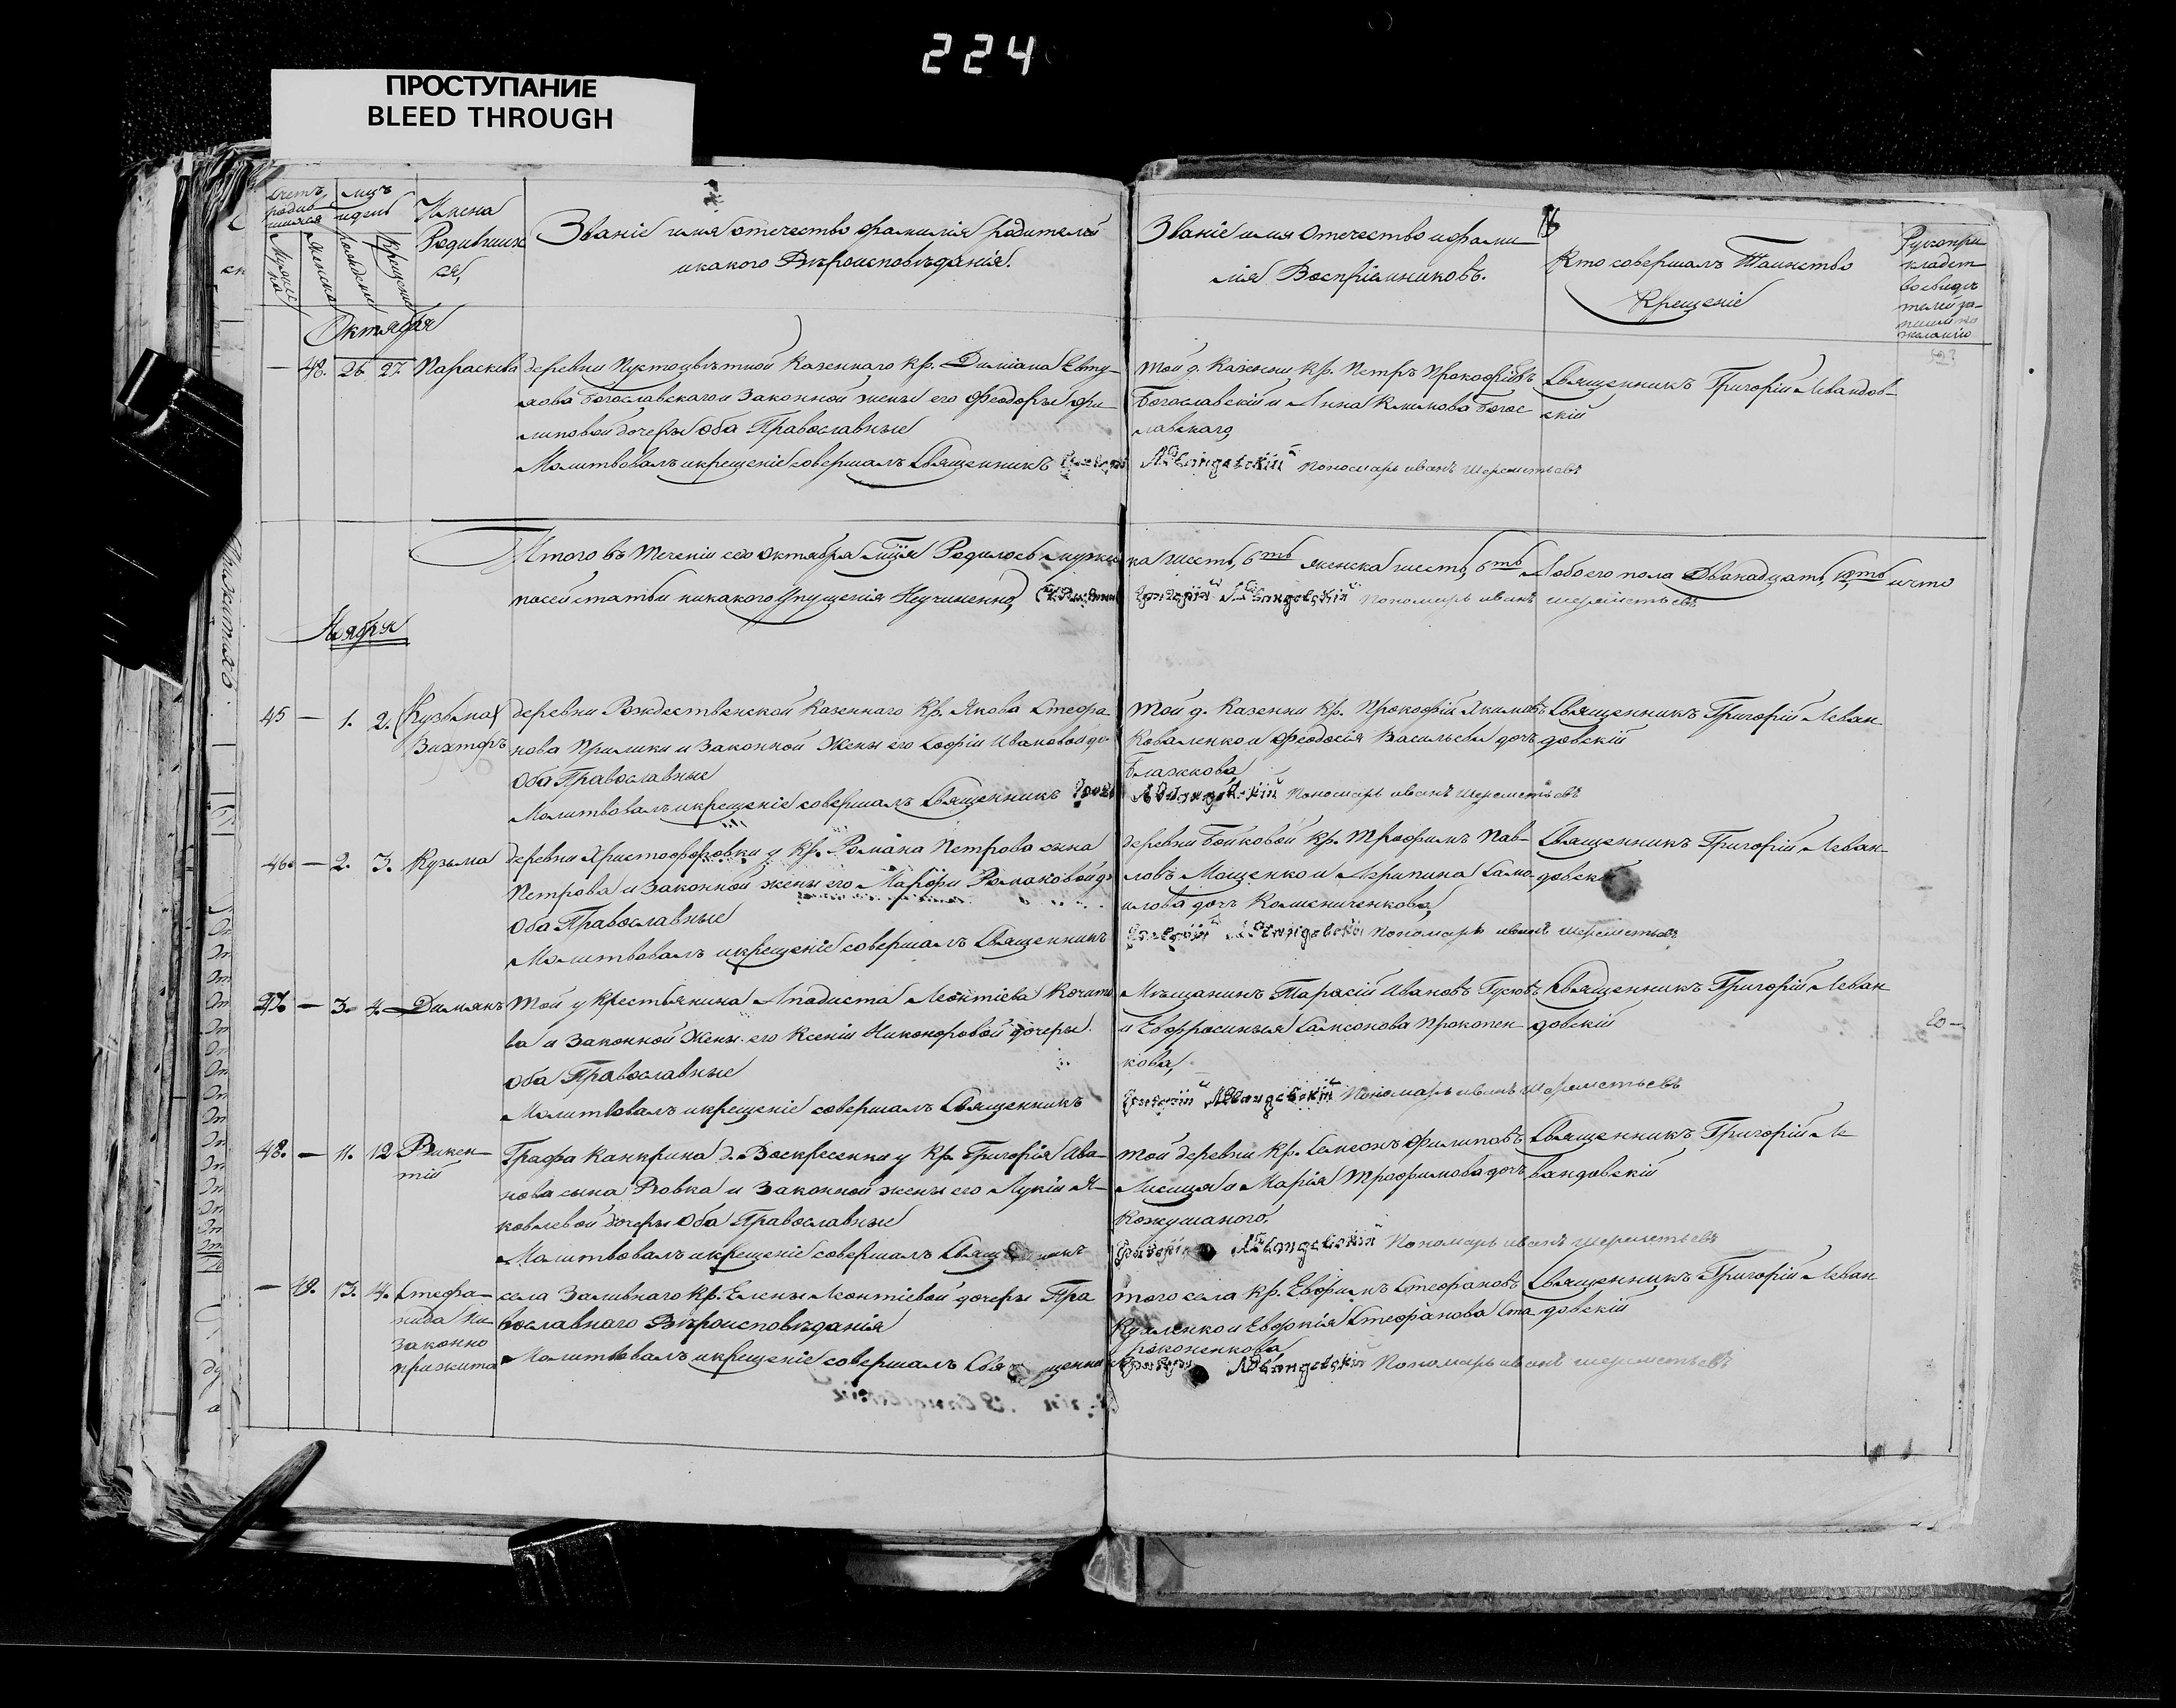 224
ПРОСТУПАНИЕ
BLEED THROUGH
Счетъ родив
шихся
Мужес
ка
Женска
мцъ
и день
рожденія
крещенія
Имена
Родивших
ся,
Званіе имя отечество фамилія родителей
и какого Вѣроисповѣданія.
Званіе имя Отечество и фами
лія Воспріемниковъ.
Кто совершалъ Таинство
Крещеніе
Рукопри
кладст
во свидѣ
телей за-
писи по
желанію
Октября
— 48. 26 27. Параскева
деревни Пустоцвѣтной Казеннаго Кр. Диміана Евту-
хова Богославскаго и Законной жены его Феодоры Фи-
липовой дочеры Оба Православные
Молитвовалъ и крещеніе совершалъ Священникъ Григорій
той д. Казенни Кр. Петръ Прокофіевъ
Богославскій и Анна Климова Богос
лавскаго,
Левандовскій Пономарь иванъ Шереметьевъ
Священникъ Григорій Левандов-
скій
Итого въ теченіи сего Октября мѣця Родилось мужес ка шесть, 6ть женска шесть, 6ть А обоего пола Двенадцать, 12ть и что
по сей статьи никакого Упущенія Неучиненно, Священникъ Григорій Левандовскій Пономарь иванъ шереметьевъ
Ноября
45 — 1. 2. Кузьма
Вихторъ
деревни Рождественской Казеннаго Кр. Якова Стефа
нова Прилики и Законной Жены его Софіи Ивановой до
Оба Православные
Молитвовалъ и крещеніе совершалъ Священникъ
той д. Казенни Кр. Прокофій Якимовъ
Коваленко и Феодосія Васильева дочь
Блажкова
Левандовскій Пономарь иванъ Шереметьевъ
Священникъ Григорій Леван
довскій
46. — 2. 3. Кузьма
деревни Христофоровки у Кр. Романа Петрова сына
Петрова и Законной жены его Марфы Романовой д
Оба Православные
Молитвовалъ и крещеніе совершалъ Священникъ
деревни Бойковой Кр. Трофимъ Пав-
ловъ Мощенко и Агрипина Само-
илова дочь Колисниченкова,
Григорій Левандовскій Пономарь иванъ шереметьевъ
Священникъ Григорій Леван-
довскій
47. — 3. 4. Димянъ
той у Крестьянина Анадиста Леонтіева Кочито
ва и Законной Жены его Ксеніи Никоноровой дочеры.
Оба Православные
Молитвовалъ и крещеніе совершалъ Священникъ
Мѣщанинъ Тарасій Ивановъ Гусювъ
и Евфросинья Самсонова Прокопен
кова,
Григорій Левандовскій Пономарь иванъ Шереметьевъ
Священникъ Григорій Леван
довскій
48. — 11. 12 Викен-
тій
Графа Канкрина д. Воскресенки у Кр. Григорія Ива-
нова сына Ровка и Законной жены его Лукіи Я-
ковлевой дочеры Оба Православные
Молитвовалъ и крещеніе совершалъ Священникъ
той деревни Кр. Симеонъ Филиповъ
Лисица и Марія Трофимова дочь
Кожушаного,
Григорій Левандовскій Пономарь иванъ шереметьевъ
Священникъ Григорій Ле
вандовскій
— 49. 13. 14. Стефа-
нида Не
законно
прижита
села Заливнаго Кр. Елены Леонтіевой дочеры Пра
вославнаго Вѣроисповѣданія
Молитвовалъ и крещеніе совершалъ Священникъ
того села Кр. Евфимъ Стефановъ
Куяленко и Евфкія Стефанова Ста
роконенкова
Григорій Левандовскій Пономарь иванъ шереметьевъ
Священникъ Григорій Леван
довскій